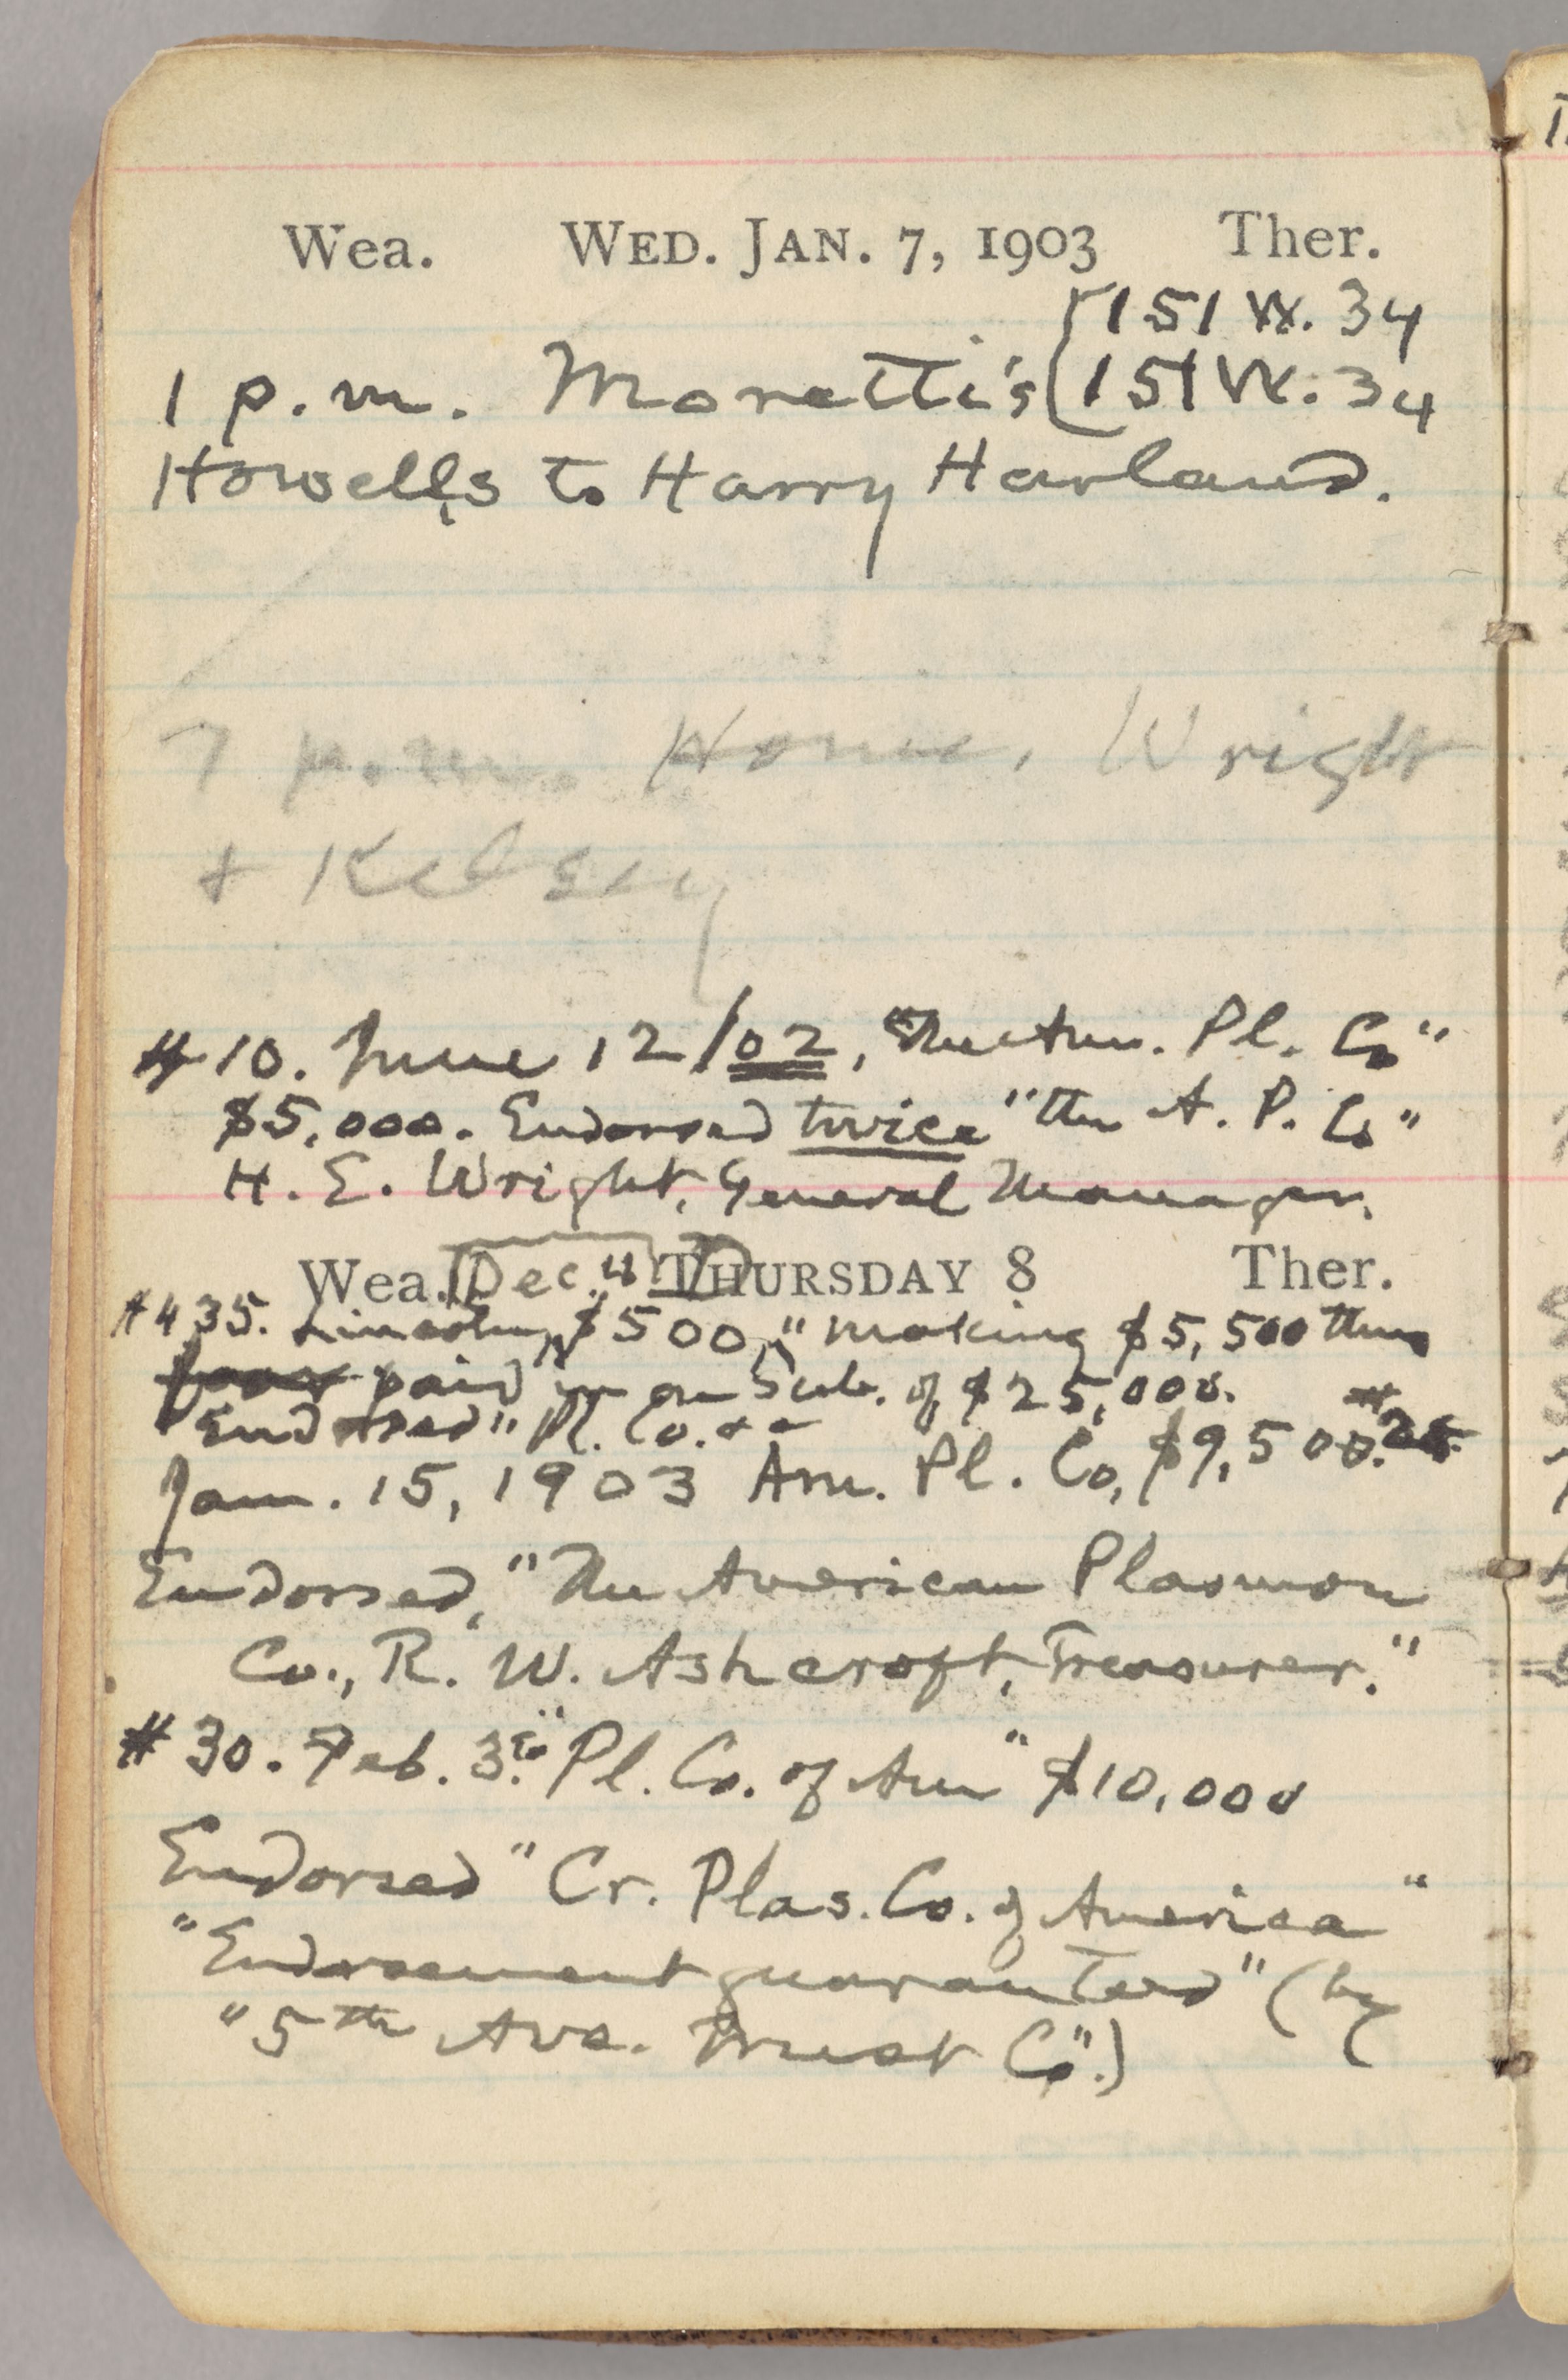 Wea. WED. JAN. 7, 1903 Ther.
151 W. 34
1 p.m. Moretti's 151 W. 34
Howells to Harry Harland.
7 p.m. Home, Wright
+ Kelsey
# 10. June 12/02, "The Am. Pl. Co"
$5,000. Endorsed twice "the A. P. Co"
H. E. Wright, General Manager.
Wea. Dec. 4 THURSDAY 8 Ther.
#435. Lincoln, $500, "making $5,500 thus
paid in on Sub. of $25,000.
Endorsed "Pl. Co. #25
Jan. 15, 1903 Am. Pl. Co, $9,500.
Endorsed, "The American Plasmon
Co., R. W. Ashcroft, Treasurer."
# 30. Feb. 3. to "Pl. Co. of Am" $10,000
Endorsed "Cr. Plas. Co. of America"
"Endorsement guaranteed" (by
"5th Ave. Trust Co".)